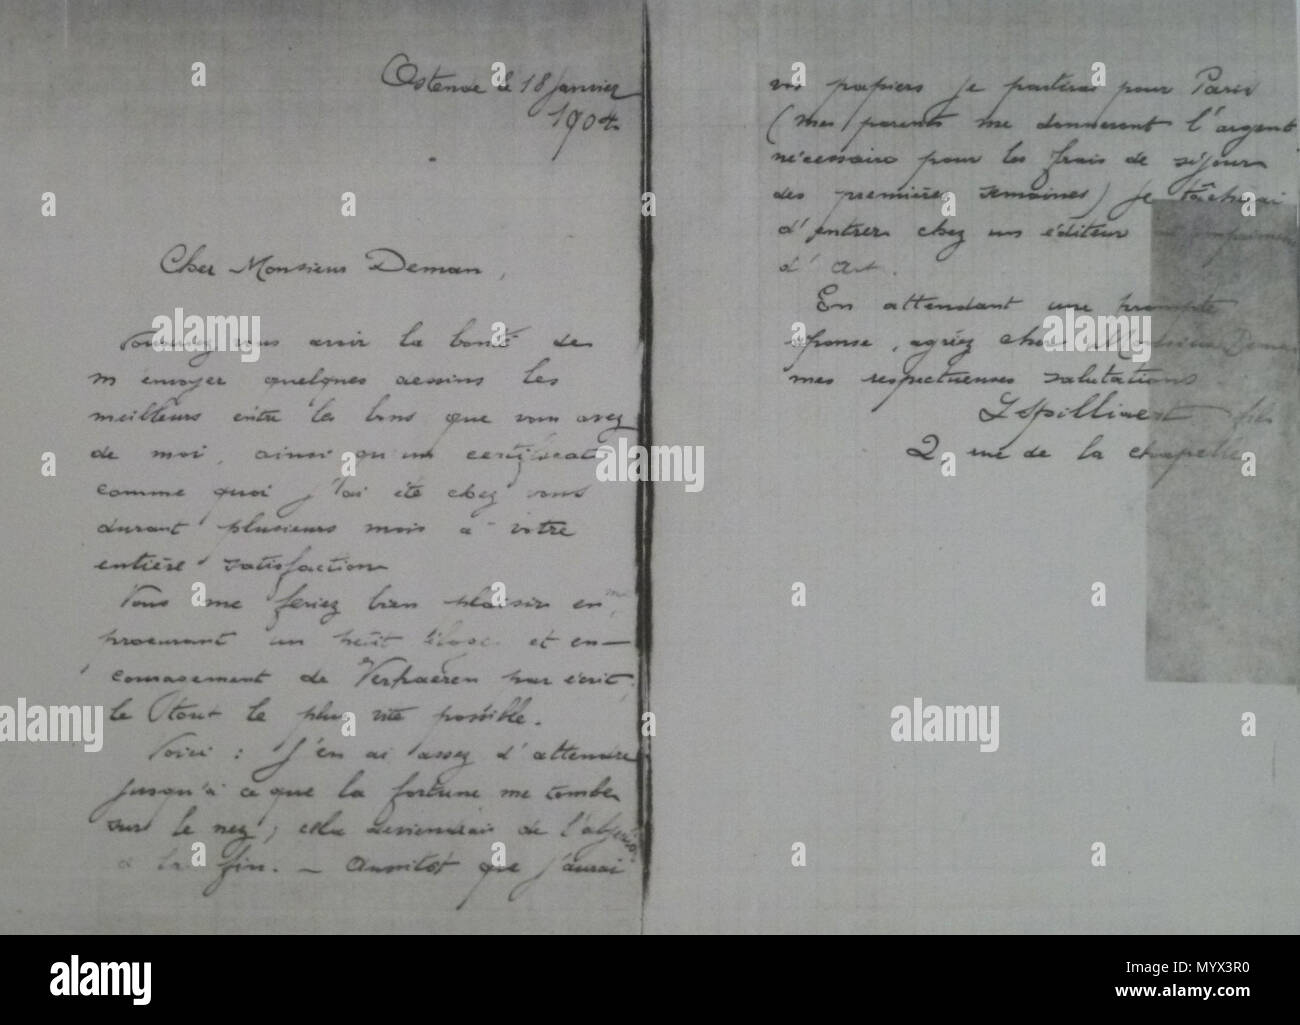 Ostende le 18 Janvier
1904
Cher Monsieur Deman,
Voudriez vous avoir la bonté de
m'envoyer quelques dessins les
meilleurs entre les bons que vous avez
de moi, ainsi qu'un certificat
comme quoi j'ai été chez vous
durant plusieurs mois à votre
entière satisfaction
Vous me feriez bien plaisir en
procurant un petit et en-
couragement de Verhaeren par écrit,
le tout le plus vite possible.
Voici : J'en ai assez d'attendre
jusqu'à ce que la fortune me tombe
sur le nez; cela deviendrais de l'
à la fin. — Aussitôt que j'aurai
vos papiers je partirai pour Paris
(mes parents me donneront l'argent
nécessaire pour les frais de séjour
des premières semaines) je tâcherai
d'entrer chez un éditeur
d'Art.
En attendant une prompte
réponse, agréez cher Monsieur Deman
mes respectueuses salutations
L Spilliaert fils
2, rue de la chapelle
a
alamy
alamy stock photo
MYX3R0
www.alamy.com